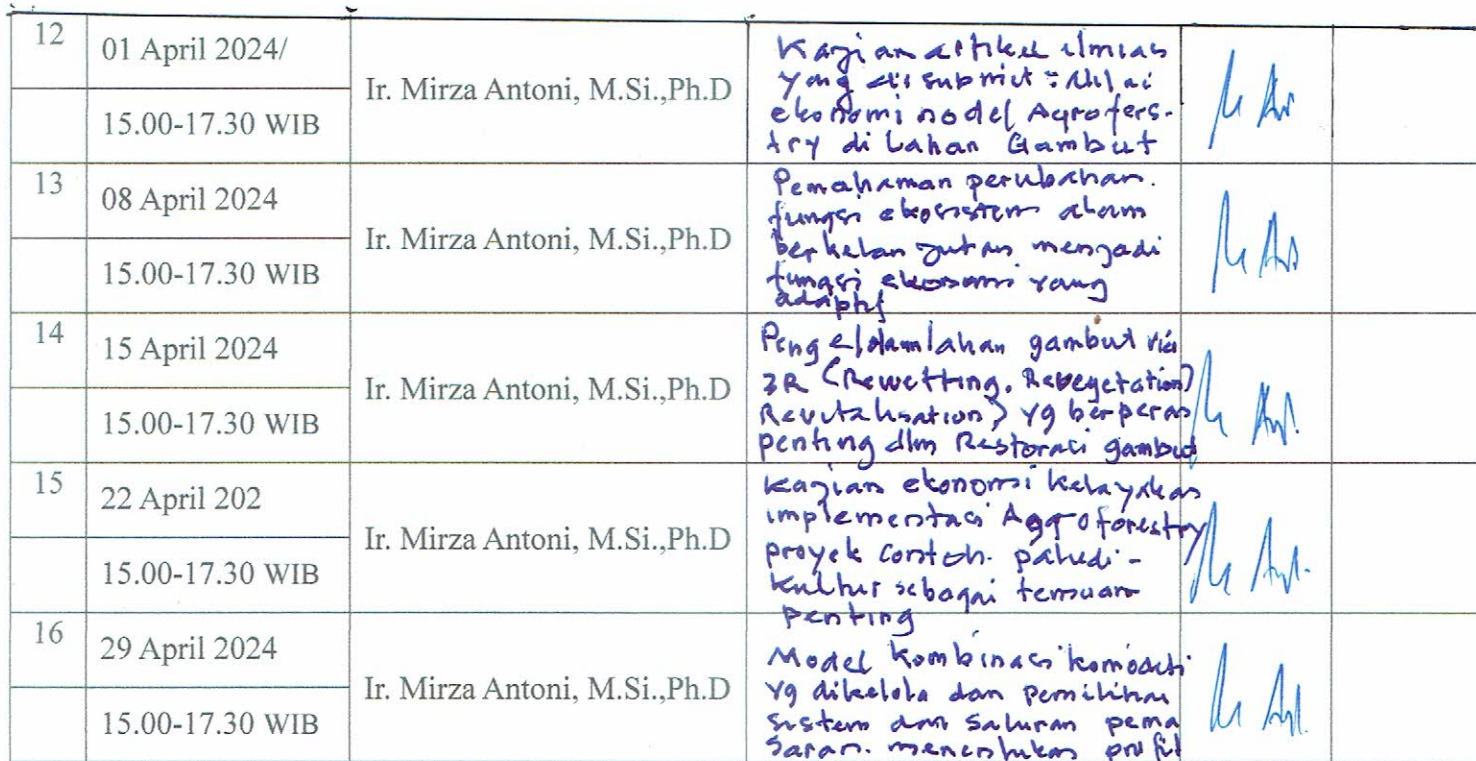 12
01 April 2024/
15.00-17.30 WIB
Ir. Mirza Antoni, M.Si.,Ph.D
Kajian artikel ilmiah
yang di submit :
ekonomi model Agrofers-
try di Lahan Gambut
13
08 April 2024
15.00-17.30 WIB
Ir. Mirza Antoni, M.Si.,Ph.D
Pemahaman perubahan.
fungsi ekosistem alam
berkelanjutan menjadi
fungsi ekonomi yang
adaptif
14
15 April 2024
15.00-17.30 WIB
Ir. Mirza Antoni, M.Si.,Ph.D
lahan gambut via
3R (Rewetting, Revegetation)
Revitalisation) yg berperan
penting dlm Restorasi gambut
15
22 April 202
15.00-17.30 WIB
Ir. Mirza Antoni, M.Si.,Ph.D
Kajian ekonomi kelayakan
implementasi Aggroforestry
proyek contoh. paludi-
kultur sebagai temuan
penting
16
29 April 2024
15.00-17.30 WIB
Ir. Mirza Antoni, M.Si.,Ph.D
Model kombinasi komoditi
yg dikelola dan pemilihan
sistem dan saluran pema
saran. menentukan profit